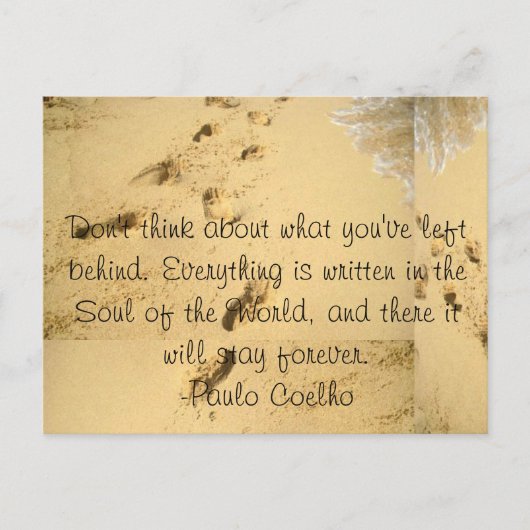 Don't think about what you've left
behind. Everything is written in the
Soul of the World, and there it
will stay forever.
-Paulo Coelho